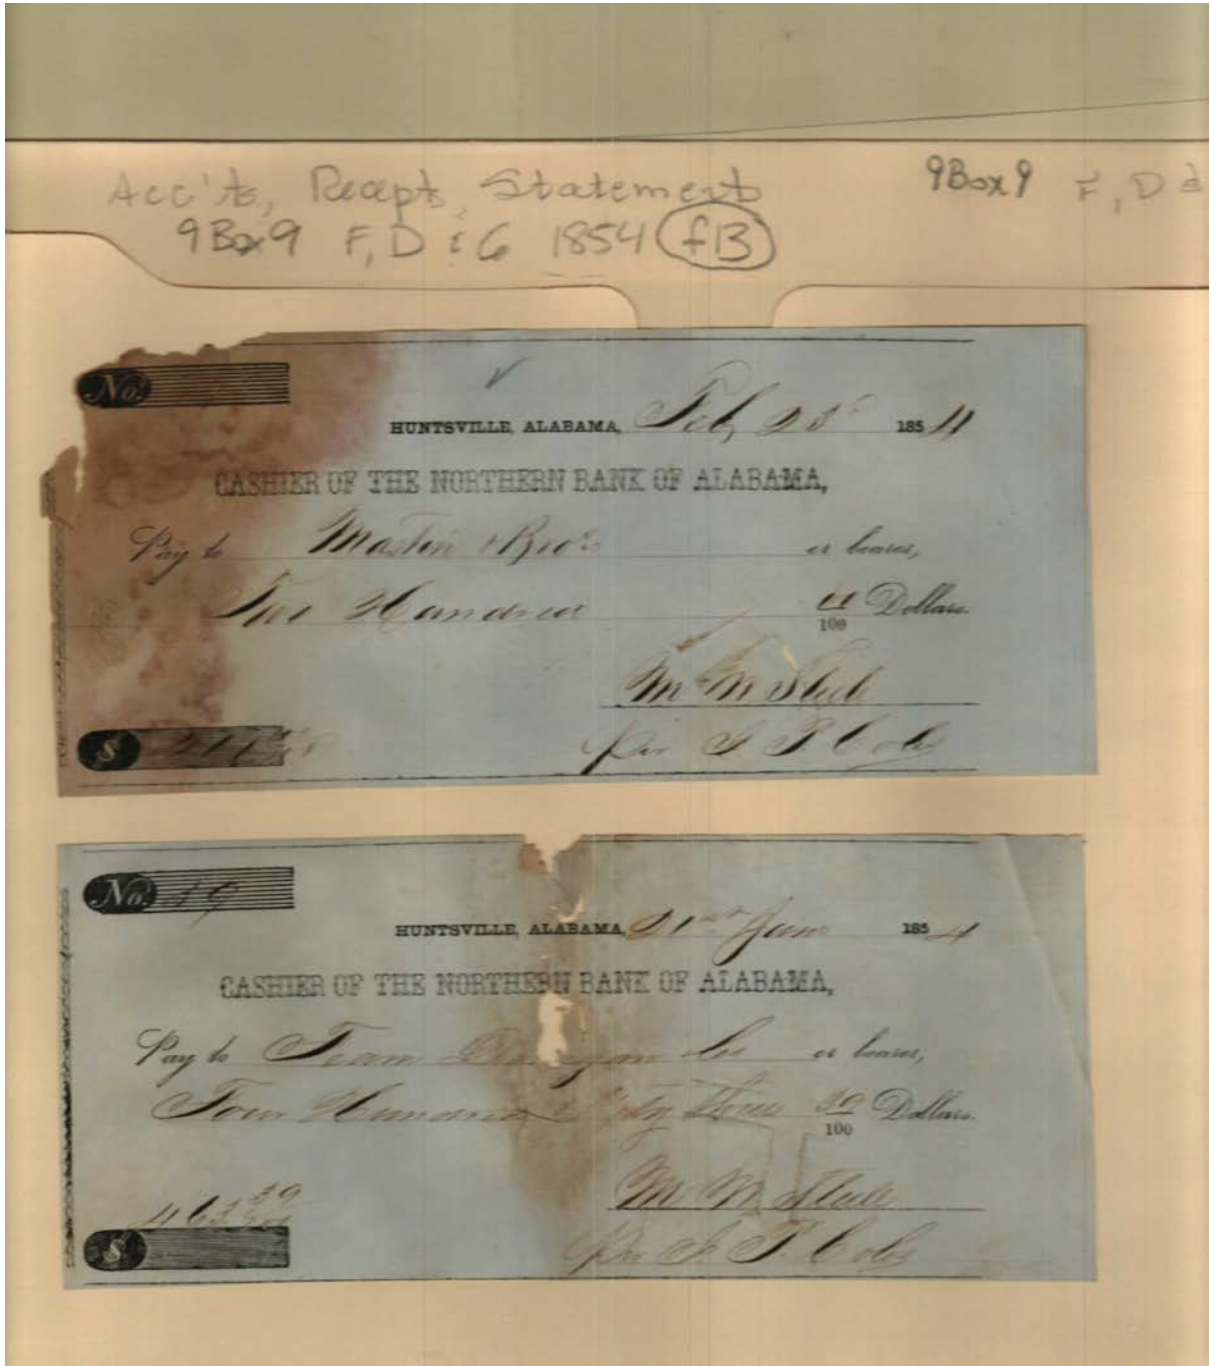 Acc'ts, Recepts, Statements
9Box9 F, D & G 1854 f13
9Box9 F, D &
No.
HUNTSVILLE, ALABAMA, Feb 23 1854
CASHIER OF THE NORTHERN BANK OF ALABAMA,
Pay to Mastin & Bros or bearer,
Two Hundred 100 Dollars.
M M Steele
Per
$
No. 19
HUNTSVILLE, ALABAMA, 21st Jany 1854
CASHIER OF THE NORTHERN BANK OF ALABAMA,
Pay to or bearer,
Four Hundred & Sixty three 39/100 Dollars.
463 39/100
M M Steele
Per
$